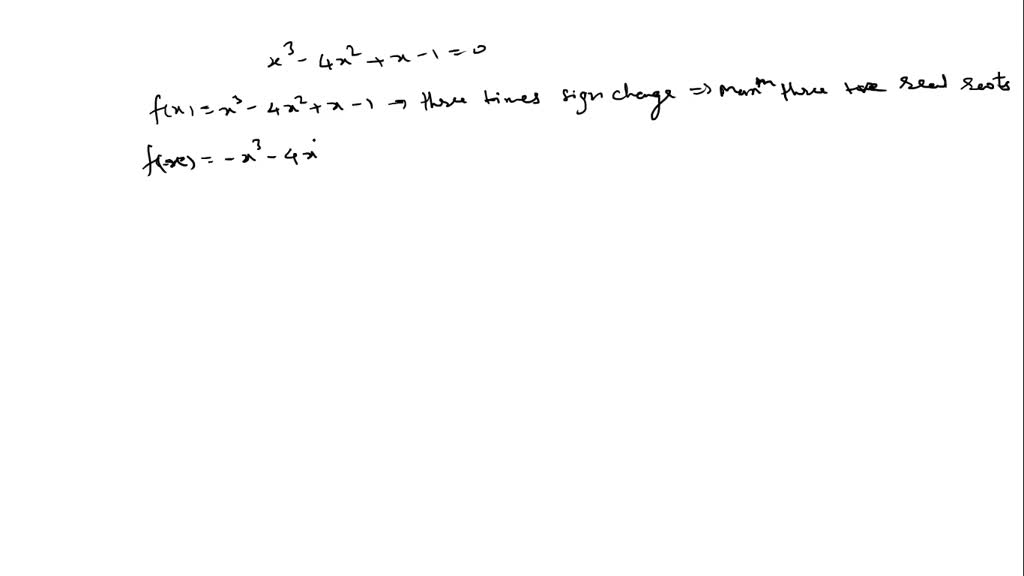 x³ - 4x² + x - 1 = 0
f(x) = x³ - 4x² + x - 1 → three times sign change ⇒ Maxᵐ three +ve real roots
f(-x) = - x³ - 4x